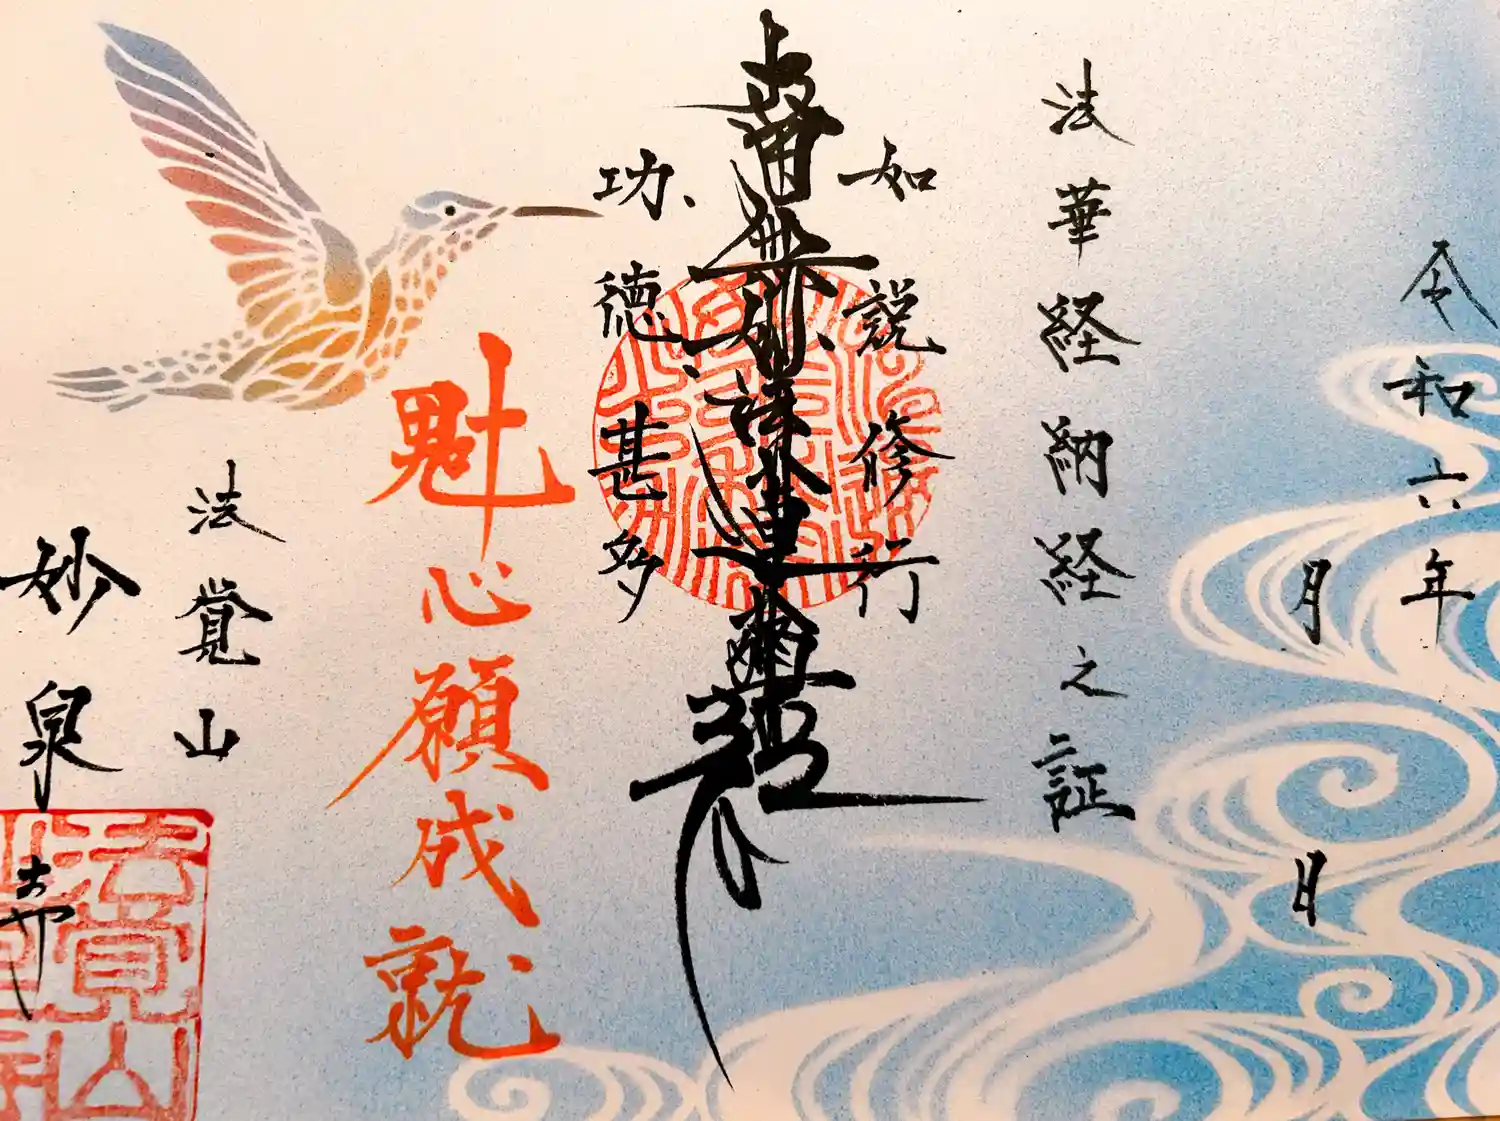 令和六年
月 日
法華経納経之証
如説修行
南無妙法蓮華経
功徳甚多
魁心願成就
法覚山
妙泉寺
法覺山